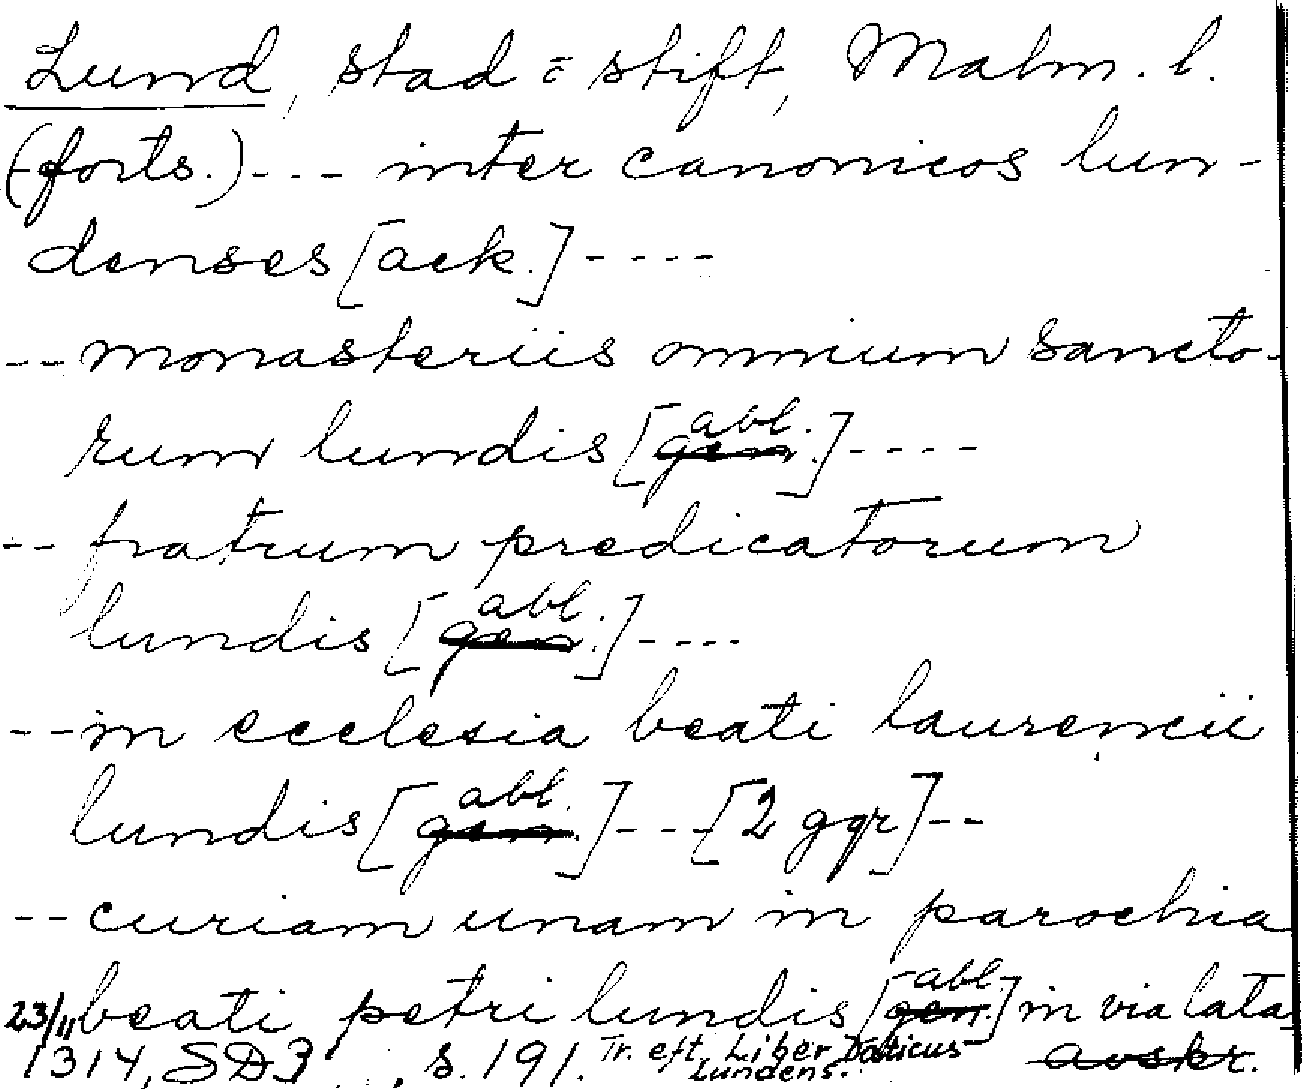 Lund, stad o stift, Malm. l.
(forts.) --- inter canonicos lun-
denses [ack.] ----
-- monasteriis omnium sancto-
rum lundis [gen. abl.] ----
-- fratrum predicatorum
lundis [gen. abl.] ----
-- in ecclesia beati laurencii
lundis [gen. abl.] --- [2 ggr] --
-- curiam unam in parochia
beati petri lundis [gen. abl.] in via lata
23/11 1314, SD3 , s. 191. Tr. eft. Liber Daticus Lundens. avskr.